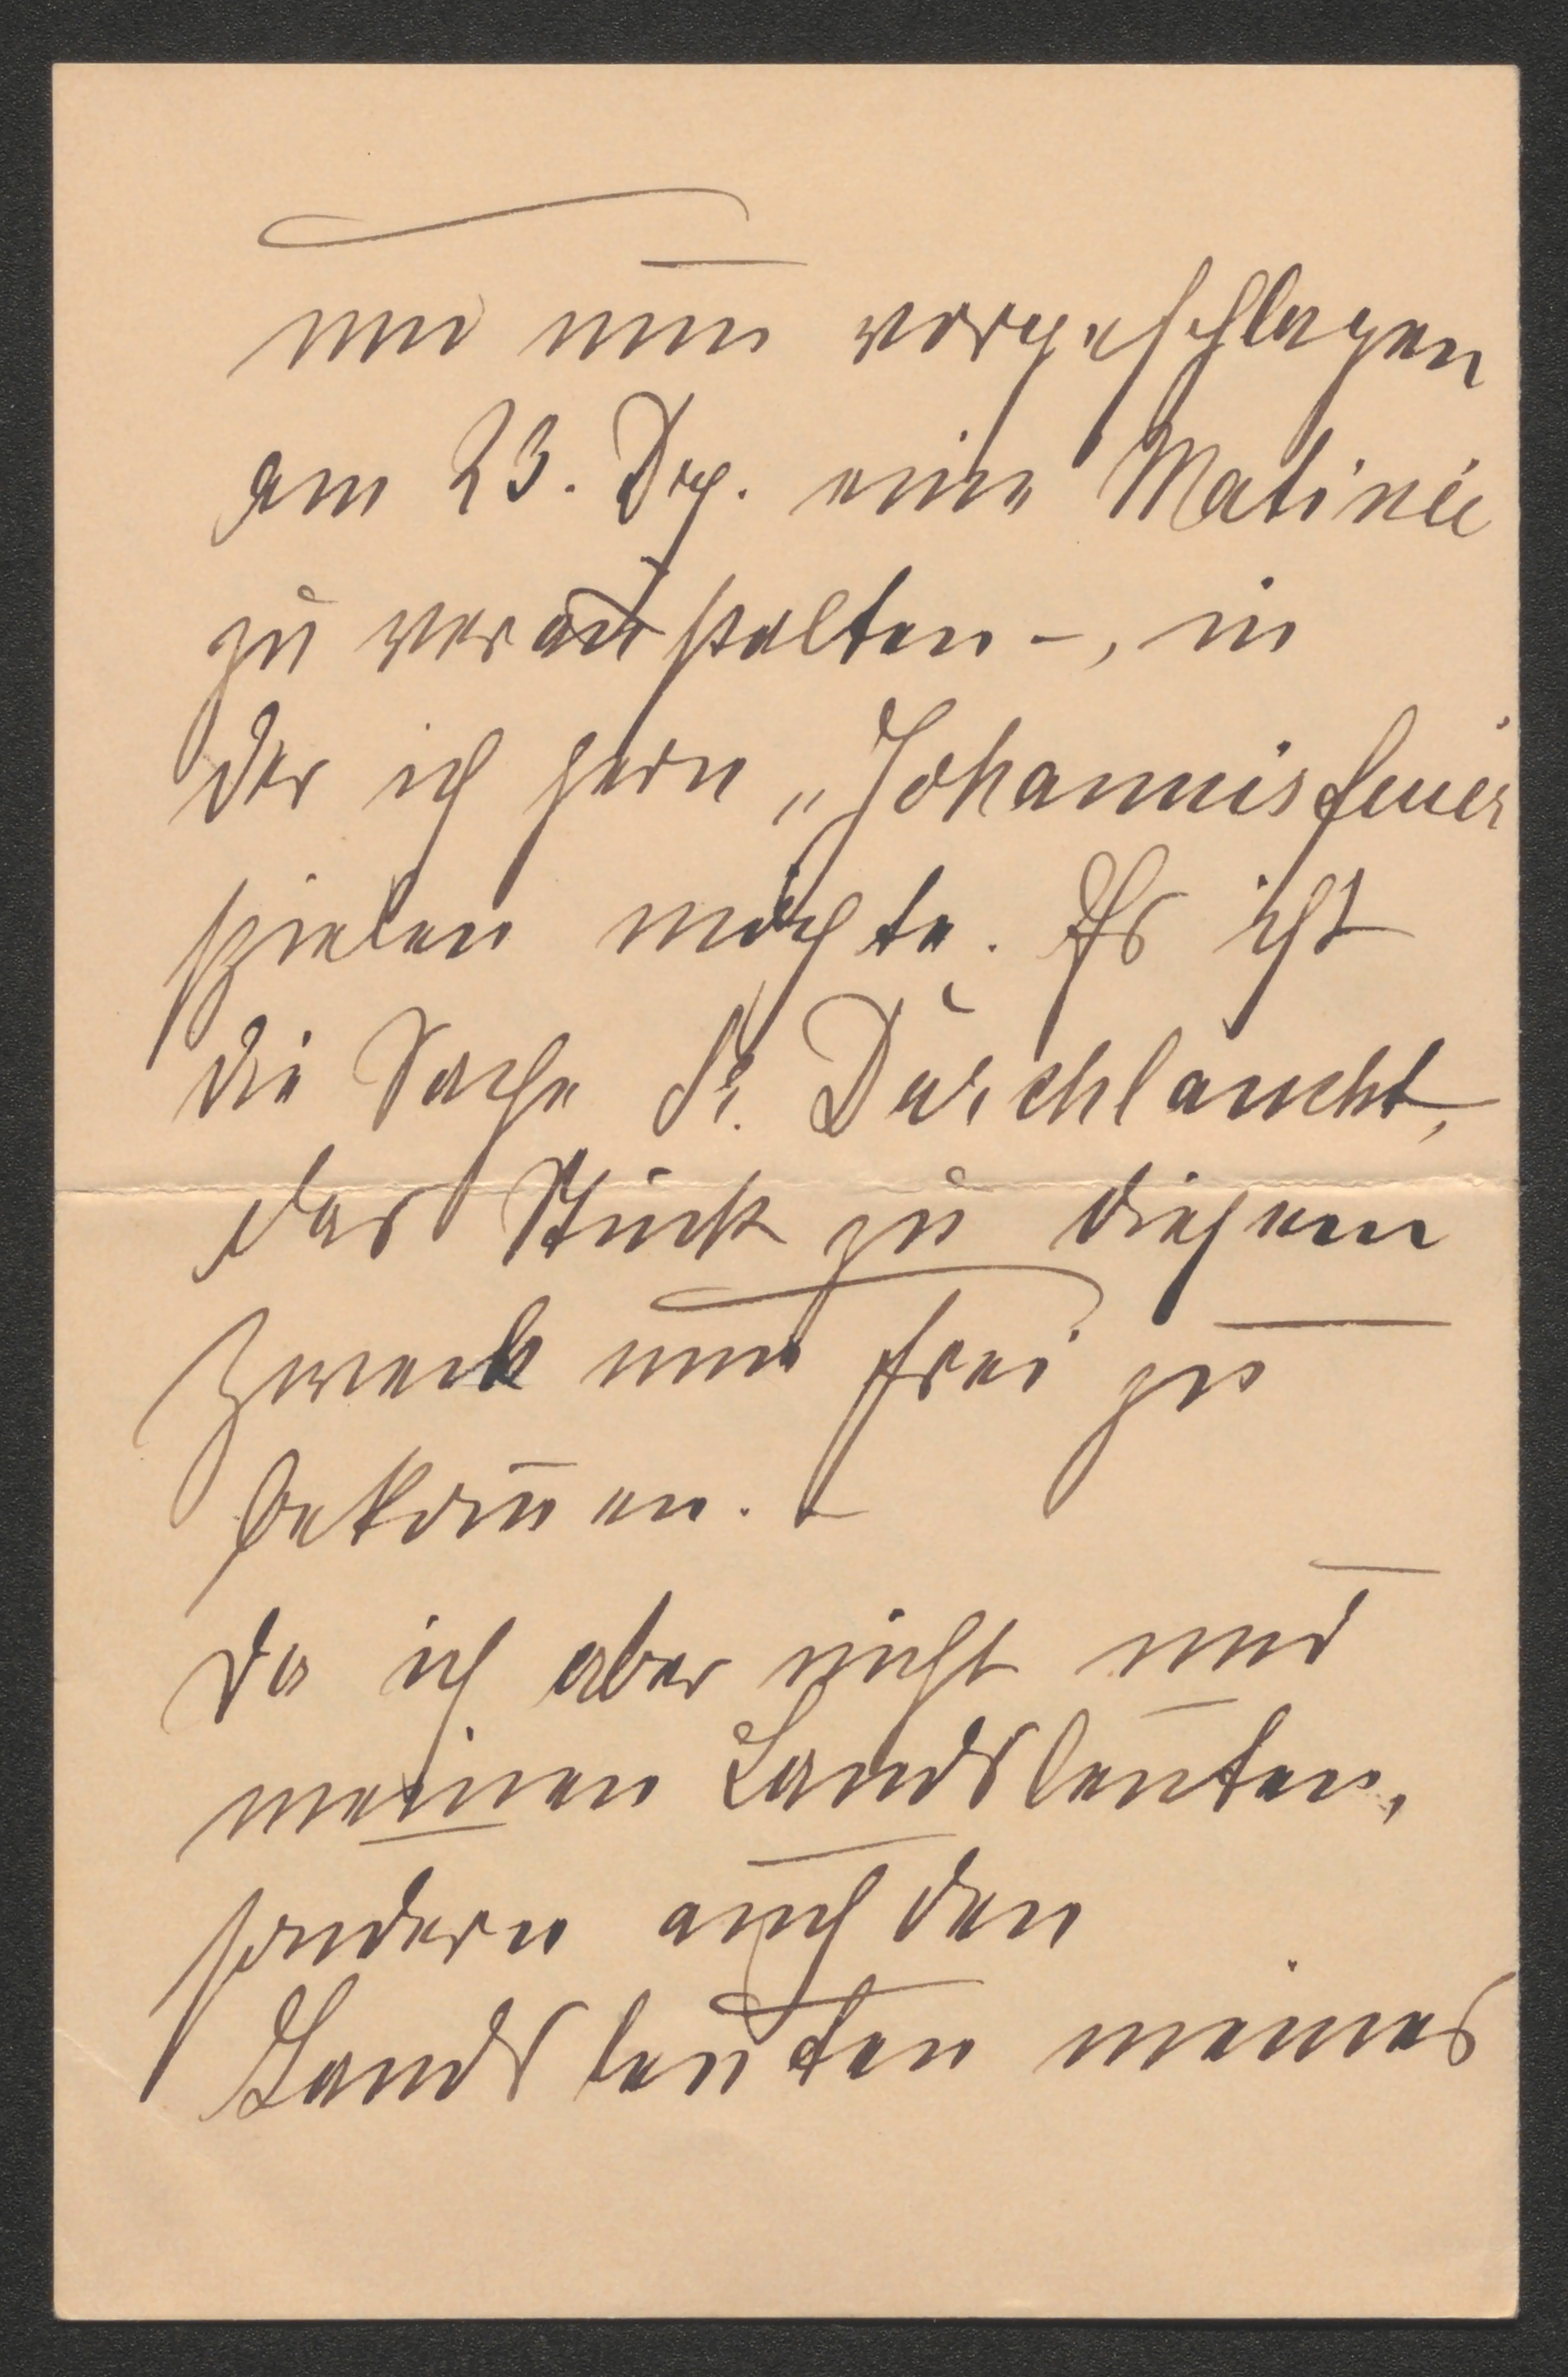 und nun vorgeschlagen
am 23. Dez. eine Matinée
zu veranstalten –, in
der ich gern „Johannisfeuer
spielen möchte. Es ist
die Sache Sr. Durchlaucht,
das Stück zu diesem
Zweck nun frei zu
bekom̅en. –
Da ich aber nicht nur
meinen Landsleuten,
sondern auch den
Landsleuten meines